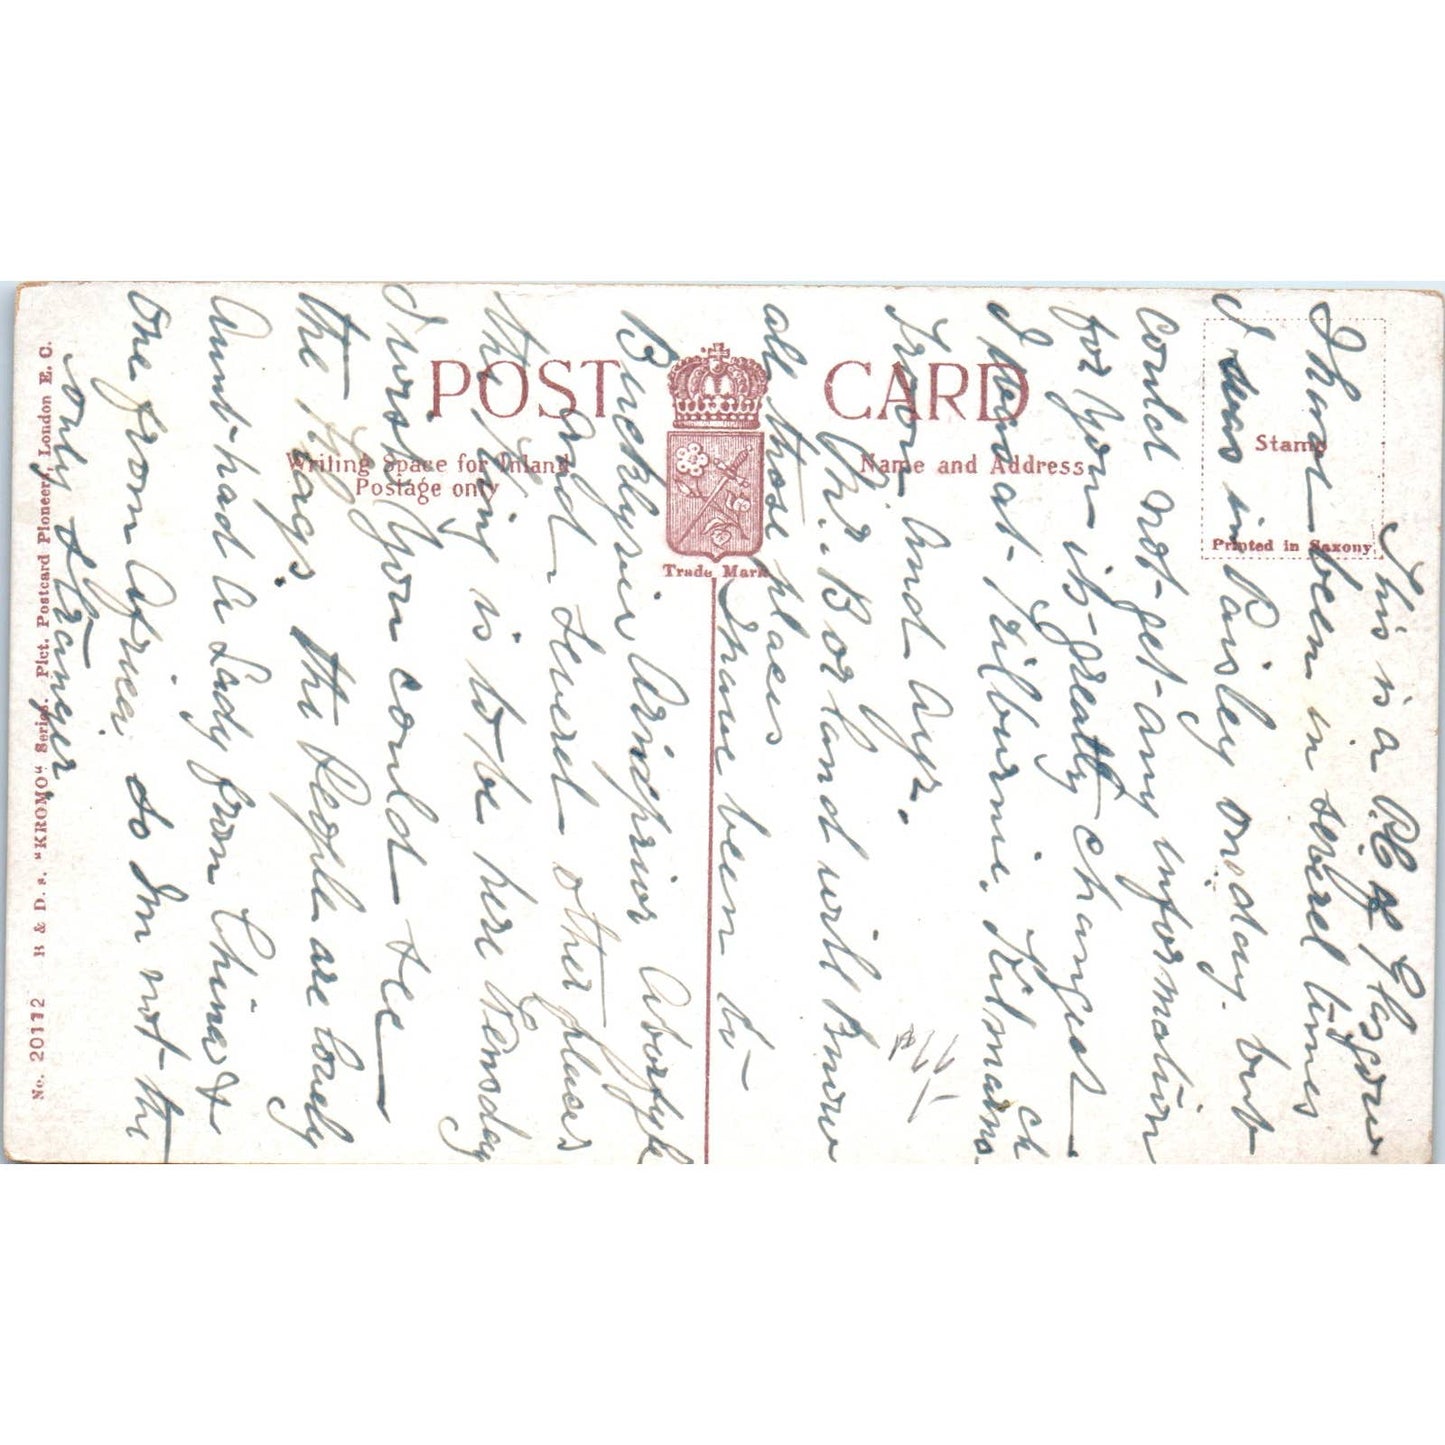 POST CARD
Writing Space for Inland
Postage only
Name and Address
Stamp
Printed in Saxony
Trade Mark
No. 20112 B & D. s. "KROMO" Series. Pict. Postcard Pioneers, London E. C.
This is a P.C of Glasgow
I have been in severel times
I was in Paisley one day. but
Could not get any information
for you its greatly changed
I was at Kilburnie. Kilmarnock
Troon And Ayr.
Mr. Borland will know
all those places
I have been to
Aberfyle
And Severel other places
the King is to be here Wensday
I wish you could see
the flags the People are lovely
Aunt had a Lady from China &
One from Africa so Im not the
only stranger.